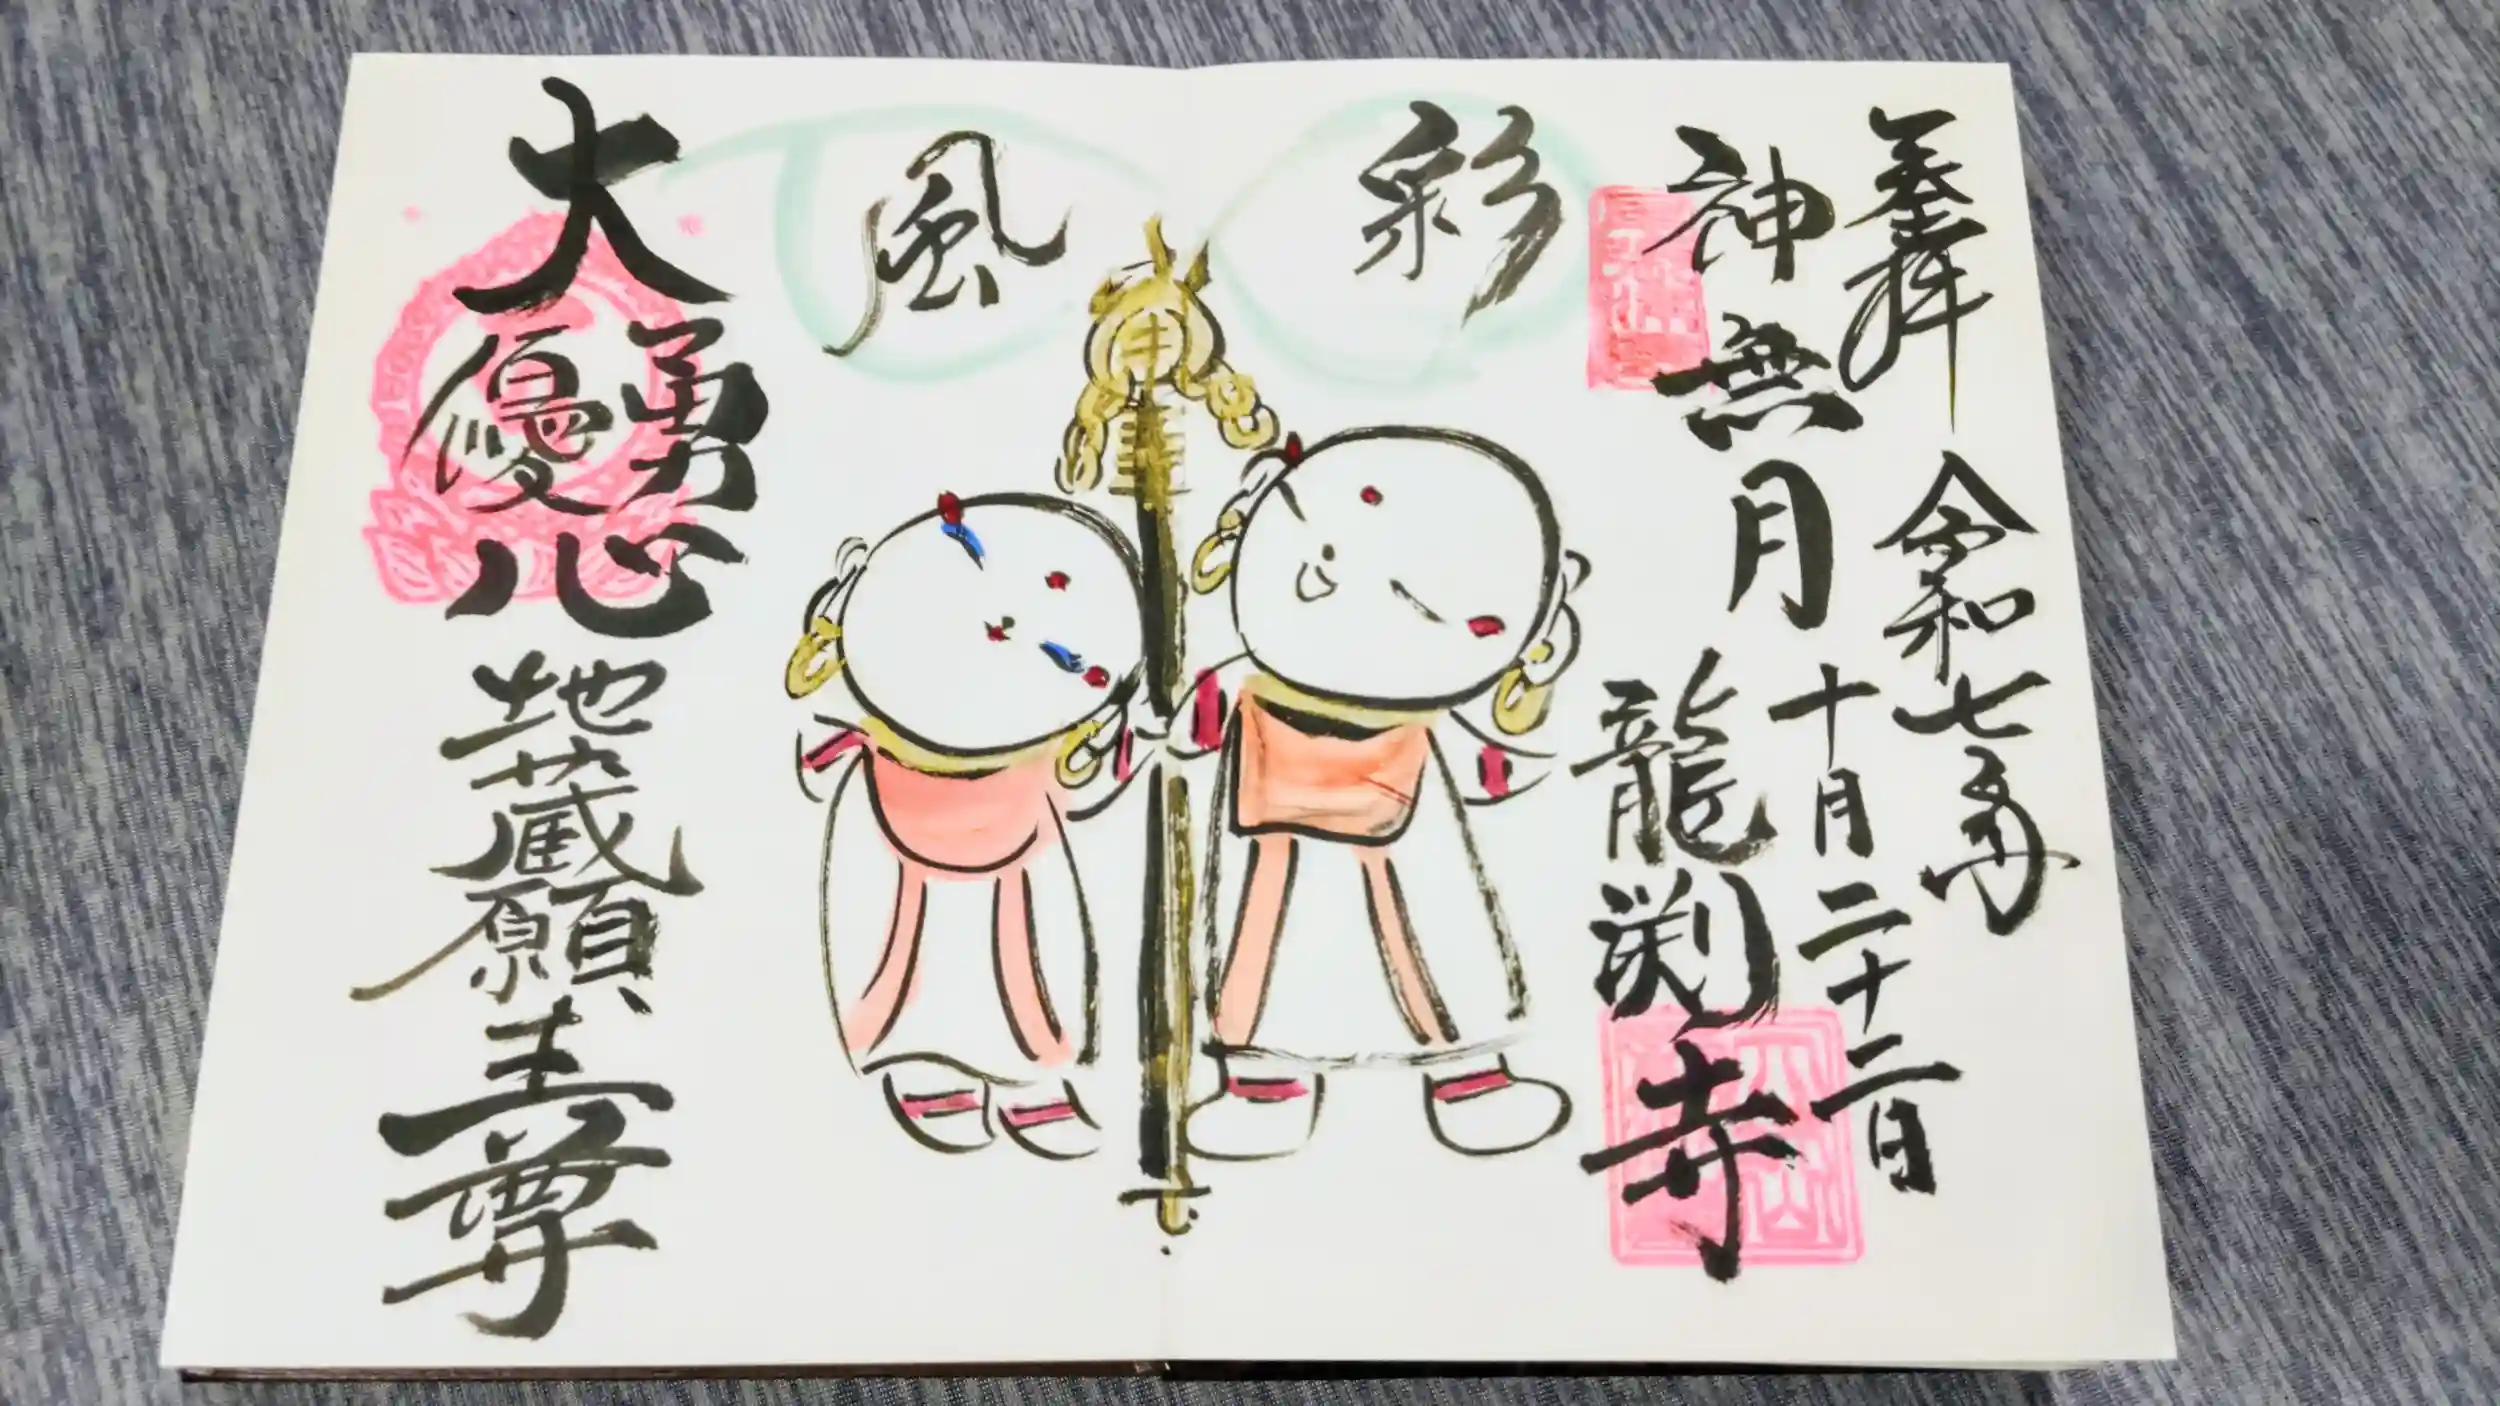 奉拝
令和七年
十月二十二日
神無月
龍渕寺
彩
風
大勇優心
地蔵願主尊